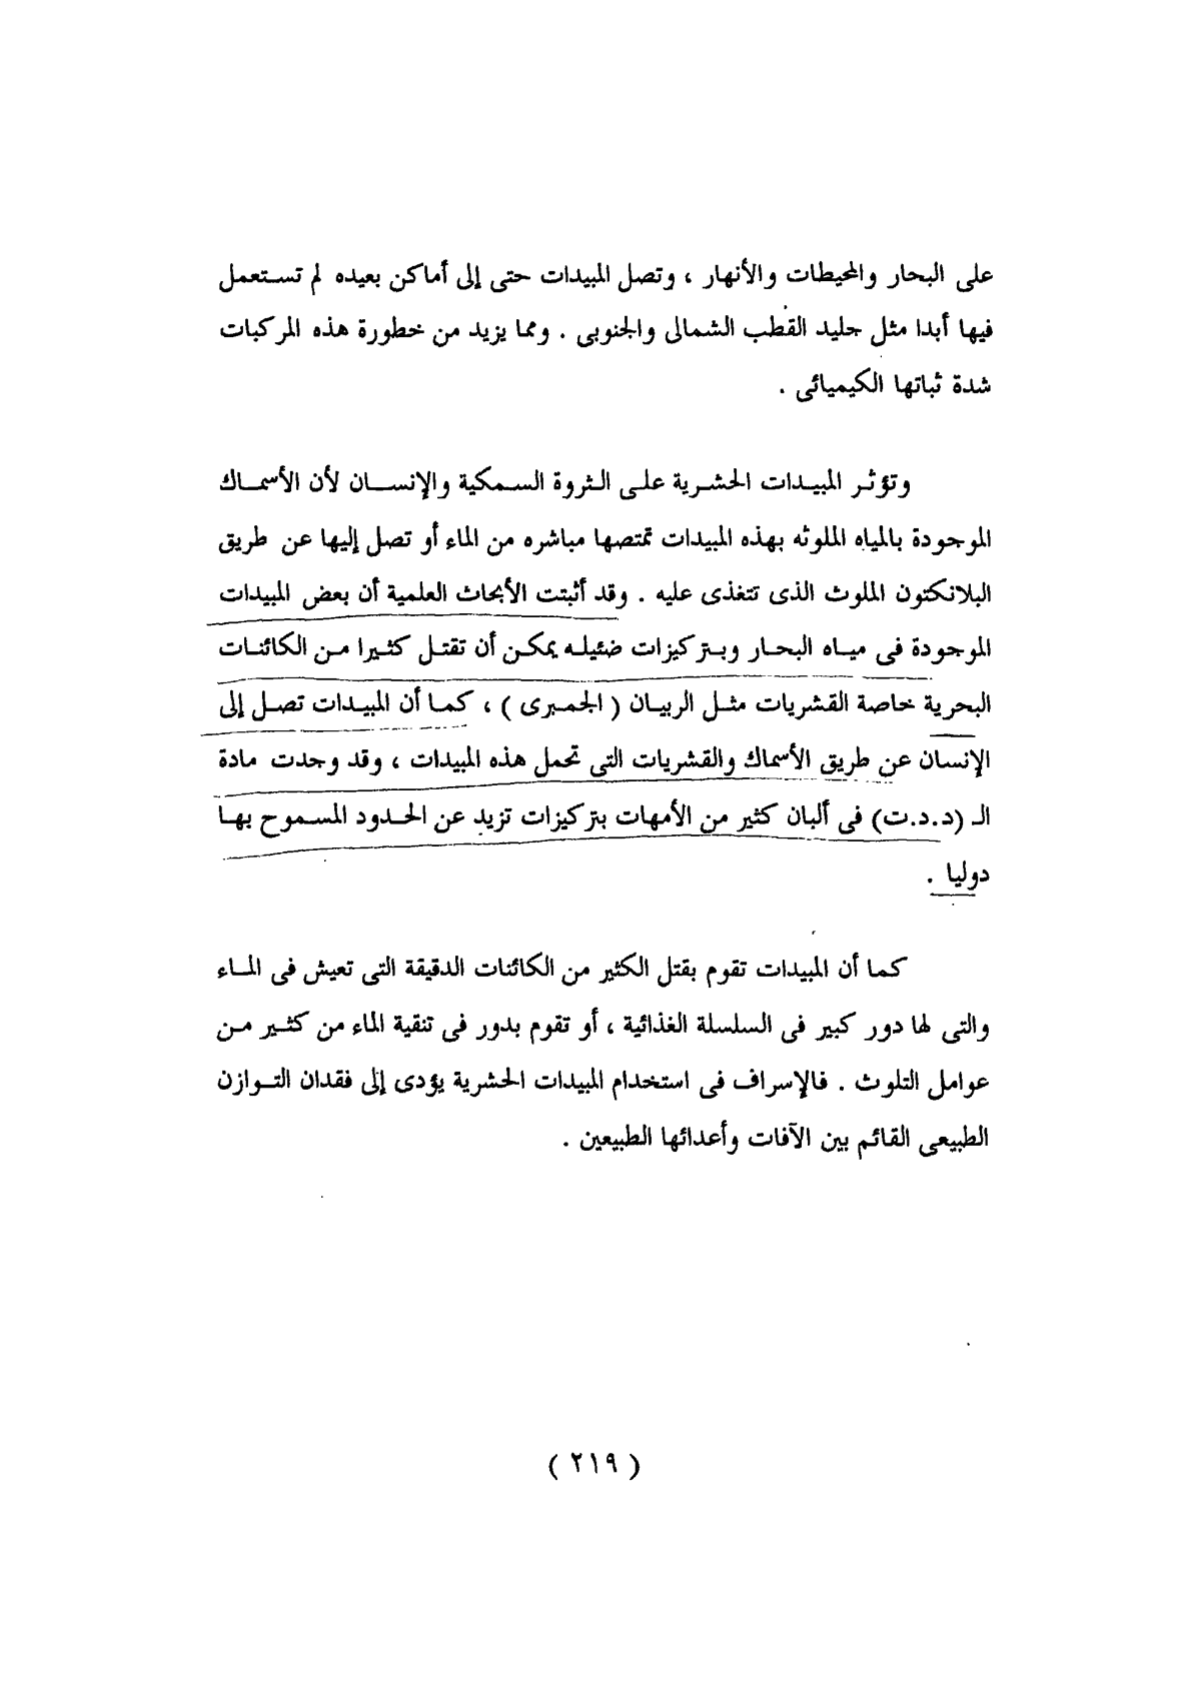 على البحار والمحيطات والأنهار ، وتصل المبيدات حتى إلى أماكن بعيده لم تستعمل
فيها أبدا مثل جليد القطب الشمالى والجنوبى . ومما يزيد من خطورة هذه المركبات
شدة ثباتها الكيميائى .
وتؤثر المبيدات الحشرية على الثروة السمكية والإنسان لأن الأسماك
الموجودة بالمياه الملوثه بهذه المبيدات تمتصها مباشره من الماء أو تصل إليها عن طريق
البلانكتون الملوث الذى تتغذى عليه . وقد أثبتت الأبحاث العلمية أن بعض المبيدات
الموجودة فى مياه البحار وبتركيزات ضئيله يمكن أن تقتل كثيرا من الكائنات
البحرية خاصة القشريات مثل الربيان ( الجمبرى ) ، كما أن المبيدات تصل إلى
الإنسان عن طريق الأسماك والقشريات التى تحمل هذه المبيدات ، وقد وجدت مادة
الـ (د.د.ت) فى ألبان كثير من الأمهات بتركيزات تزيد عن الحدود المسموح بها
دوليا .
كما أن المبيدات تقوم بقتل الكثير من الكائنات الدقيقة التى تعيش فى الماء
والتى لها دور كبير فى السلسلة الغذائية ، أو تقوم بدور فى تنقية الماء من كثير من
عوامل التلوث . فالإسراف فى استخدام المبيدات الحشرية يؤدى إلى فقدان التوازن
الطبيعى القائم بين الآفات وأعدائها الطبيعين .
( ٢١٩ )